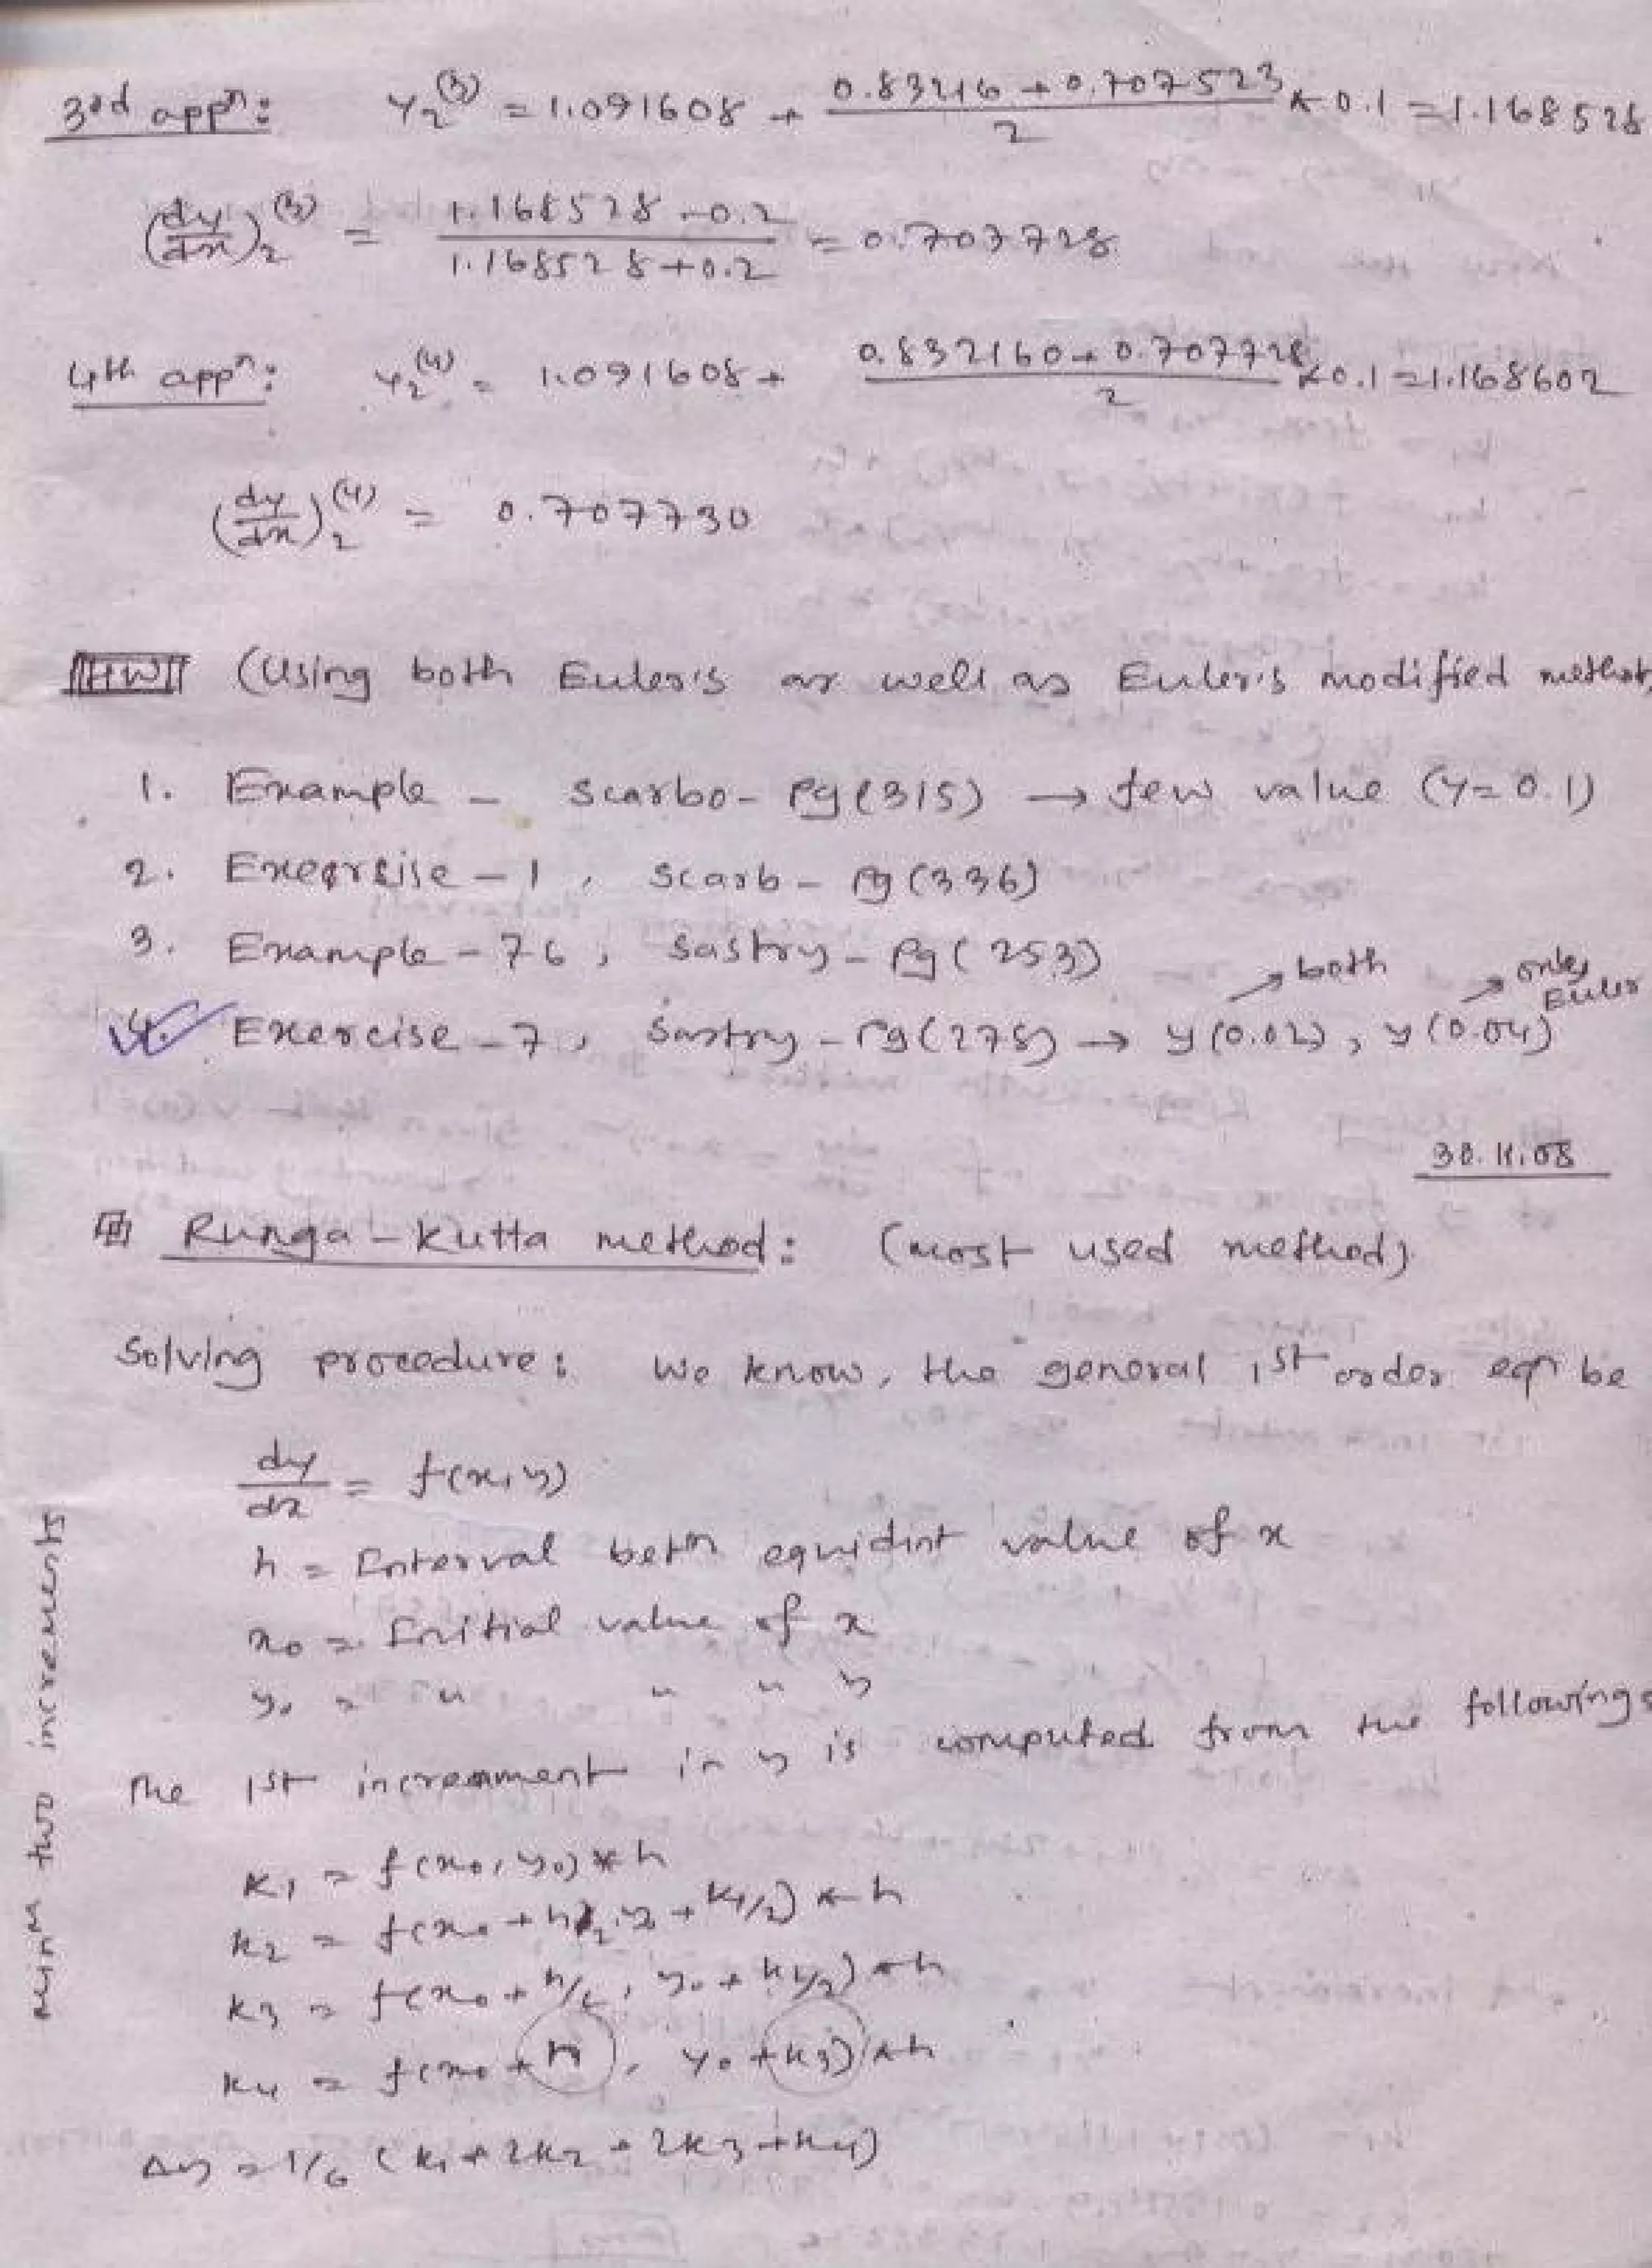 3rd appⁿ: y₂⁽³⁾ = 1.091608 + (0.83216 + 0.707523)/2 × 0.1 = 1.168528
(dy/dx)₂⁽³⁾ = (1.168528 - 0.2)/(1.168528 + 0.2) = 0.707728
4th appⁿ: y₂⁽⁴⁾ = 1.091608 + (0.832160 + 0.707728)/2 × 0.1 = 1.168602
(dy/dx)₂⁽⁴⁾ = 0.707730
HW (Using both Euler's as well as Euler's modified method
1. Example - Scarbo - Pg (315) → few value (y = 0.1)
2. Exercise - 1, Scarb - Pg (336)
3. Example - 76, Sastry - Pg (253)
4. Exercise - 7, Sastry - Pg (275) → y(0.02), y(0.04)
both
only Euler
30.11.08
Runga-Kutta method: (most used method)
Solving procedure: We know, the general 1st order eqⁿ be
dy/dx = f(x, y)
h = Interval betⁿ equidint value of x
x₀ = Initial value of x
y₀ = " " " y
The 1st increamment in y is computed from the following
K₁ = f(x₀, y₀) * h
K₂ = f(x₀ + h/2, y₀ + K₁/2) * h
K₃ = f(x₀ + h/2, y₀ + K₂/2) * h
K₄ = f(x₀ + h, y₀ + K₃) * h
Δy = 1/6 (K₁ + 2K₂ + 2K₃ + K₄)
minᵐ two increments